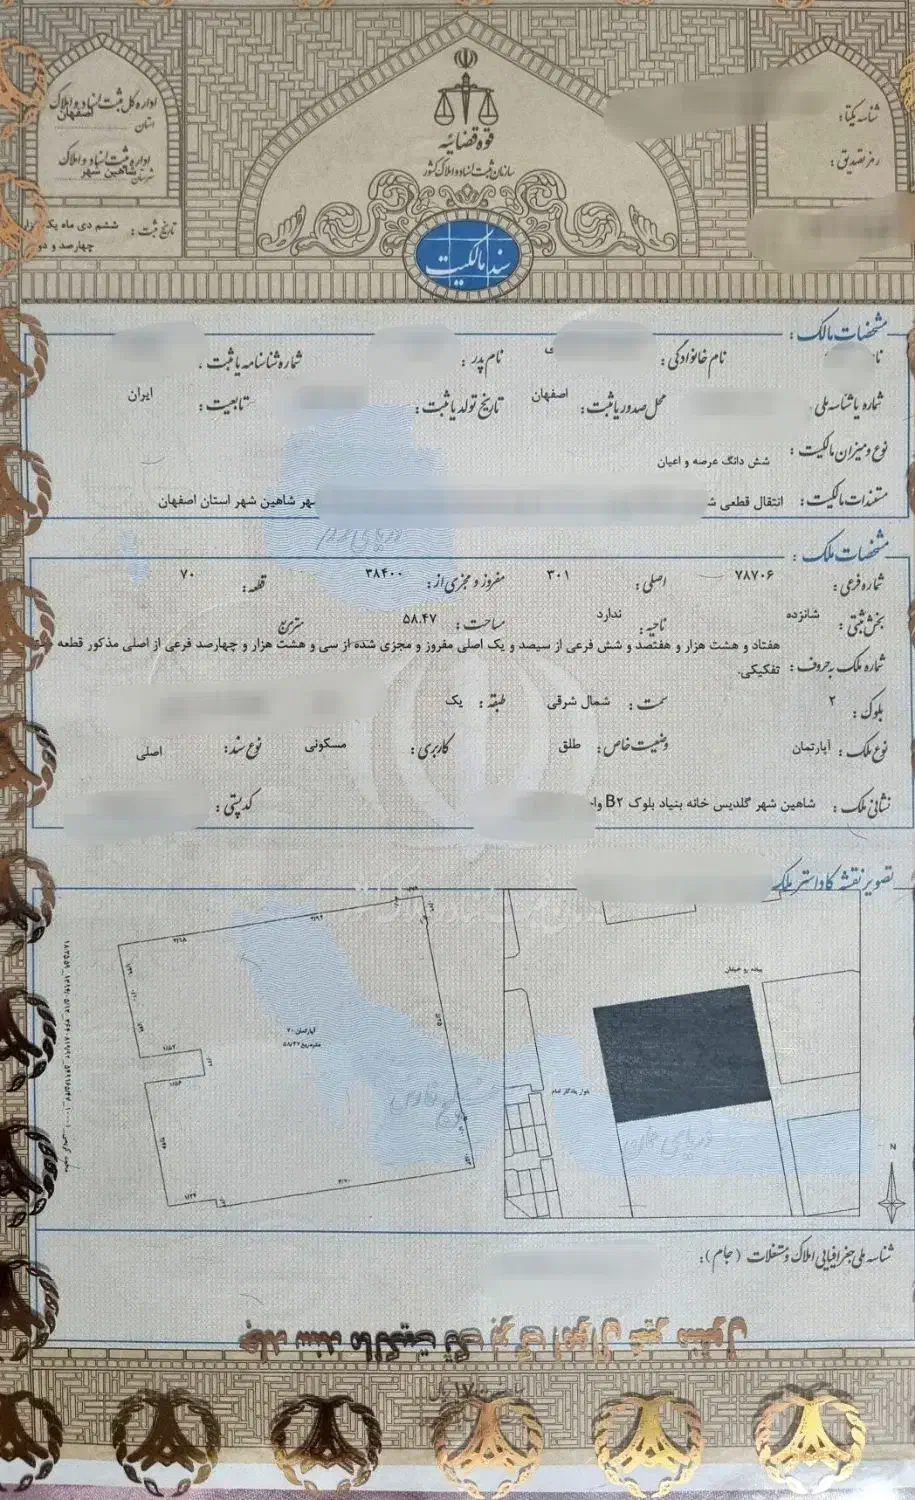 قوه قضائیه
سازمان ثبت اسناد و املاک کشور
اداره کل ثبت اسناد و املاک
استان اصفهان
اداره ثبت اسناد و املاک
شهرستان شاهین شهر
تاریخ ثبت : ششم دی ماه یک
چهارصد و دو
شناسه یکتا :
رمز تصدیق :
سند مالکیت
مشخصات مالک :
نام خانوادگی :
نام پدر :
شماره شناسنامه یا ثبت :
شماره یا شناسه ملی :
محل صدور یا ثبت : اصفهان
تاریخ تولد یا ثبت :
تابعیت : ایران
نوع و میزان مالکیت : شش دانگ عرصه و اعیان
مستندات مالکیت : انتقال قطعی شهر شاهین شهر استان اصفهان
مشخصات ملک :
شماره فرعی : ۷۸۷۰۶ اصلی : ۳۰۱ مفروز و مجزی از : ۳۸۴۰۰ قطعه : ۷۰
بخش ثبتی : شانزده ناحیه : ندارد مساحت : ۵۸.۴۷ متر مربع
شماره ملک به حروف : هفتاد و هشت هزار و هفتصد و شش فرعی از سیصد و یک اصلی مفروز و مجزی شده از سی و هشت هزار و چهارصد فرعی از اصلی مذکور قطعه
تفکیکی.
بلوک : ۲ سمت : شمال شرقی طبقه : یک
نوع ملک : آپارتمان وضعیت خاص : طلق کاربری : مسکونی نوع سند : اصلی
نشانی ملک : شاهین شهر گلدیس خانه بنیاد بلوک B۲
کد پستی :
تصویر نقشه کاداستر ملک
آپارتمان ۷۰
۵۸/۴۷
پیاده رو خیابان
بلوار یادگار امام
خلیج فارس
دریای عمان
N
شناسه ملی جغرافیایی املاک و مستغلات (جام) :
جلد سند مالکیت تک برگ اموال غیر منقول